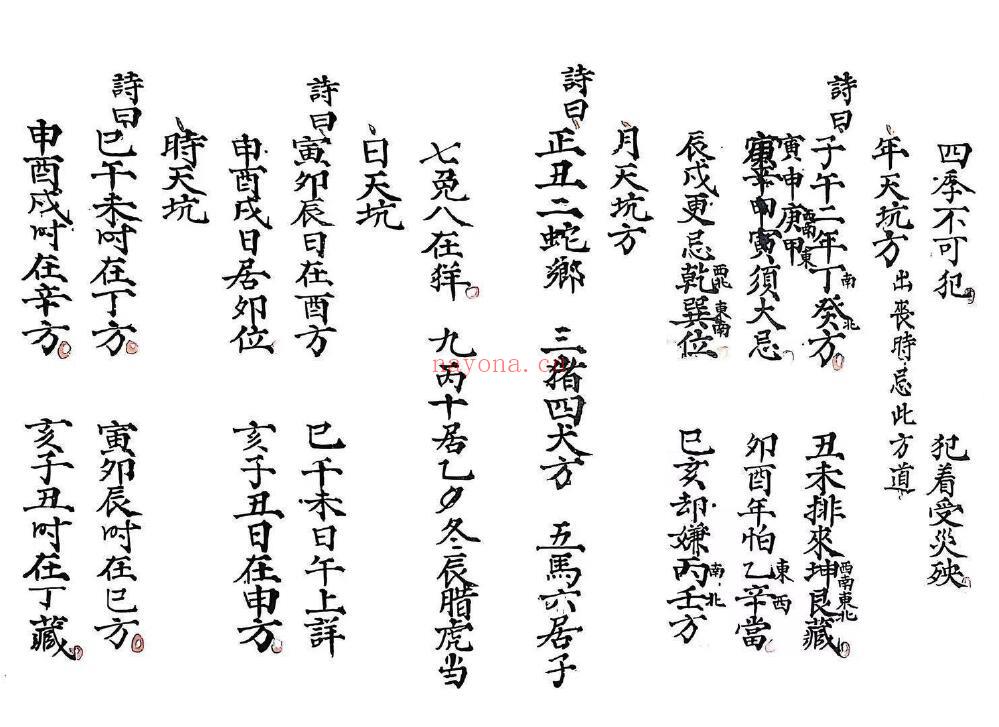 四季不可犯 犯着受災殃
年天坑方 出喪時忌此方道
詩曰 子午二年丁南癸北方 丑未排來坤西南艮東北藏
寅申庚西南甲東
寅須大忌 卯酉年怕乙東辛西當
辰戌更忌乾西北巽東南位 巳亥却嫌丙南壬北方
月天坑方
詩曰 正丑二蛇鄉 三猪四犬方 五馬六居子
七兎八在 九丙十居乙 冬辰腊虎当
日天坑
詩曰 寅卯辰日在酉方 巳午未日午上詳
申酉戌日居夘位 亥子丑日在申方
時天坑
詩曰 巳午未时在丁方 寅卯辰时在巳方
申酉戌时在辛方 亥子丑时在丁藏
nayona.cn